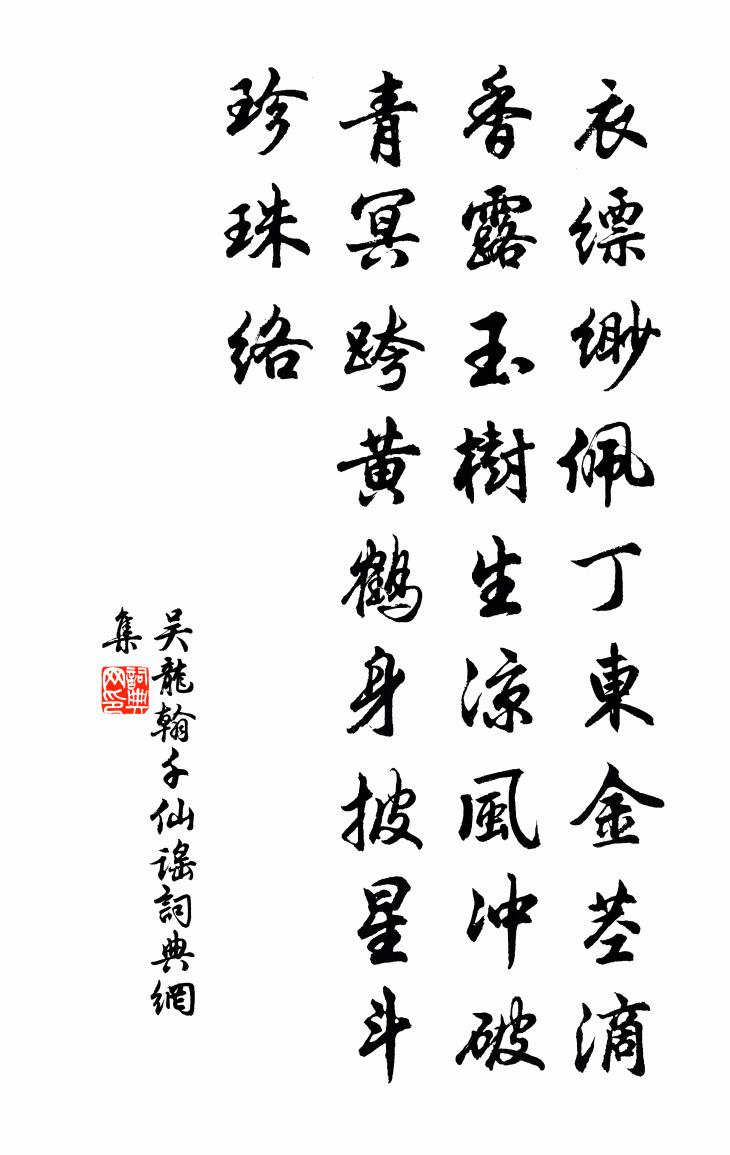 衣縹緲佩丁東金莖滴
香露玉樹生涼風冲破
青冥跨黄鶴身披星斗
珍珠絡
吴龍翰千仙謠詞典網
集
詞典
网印